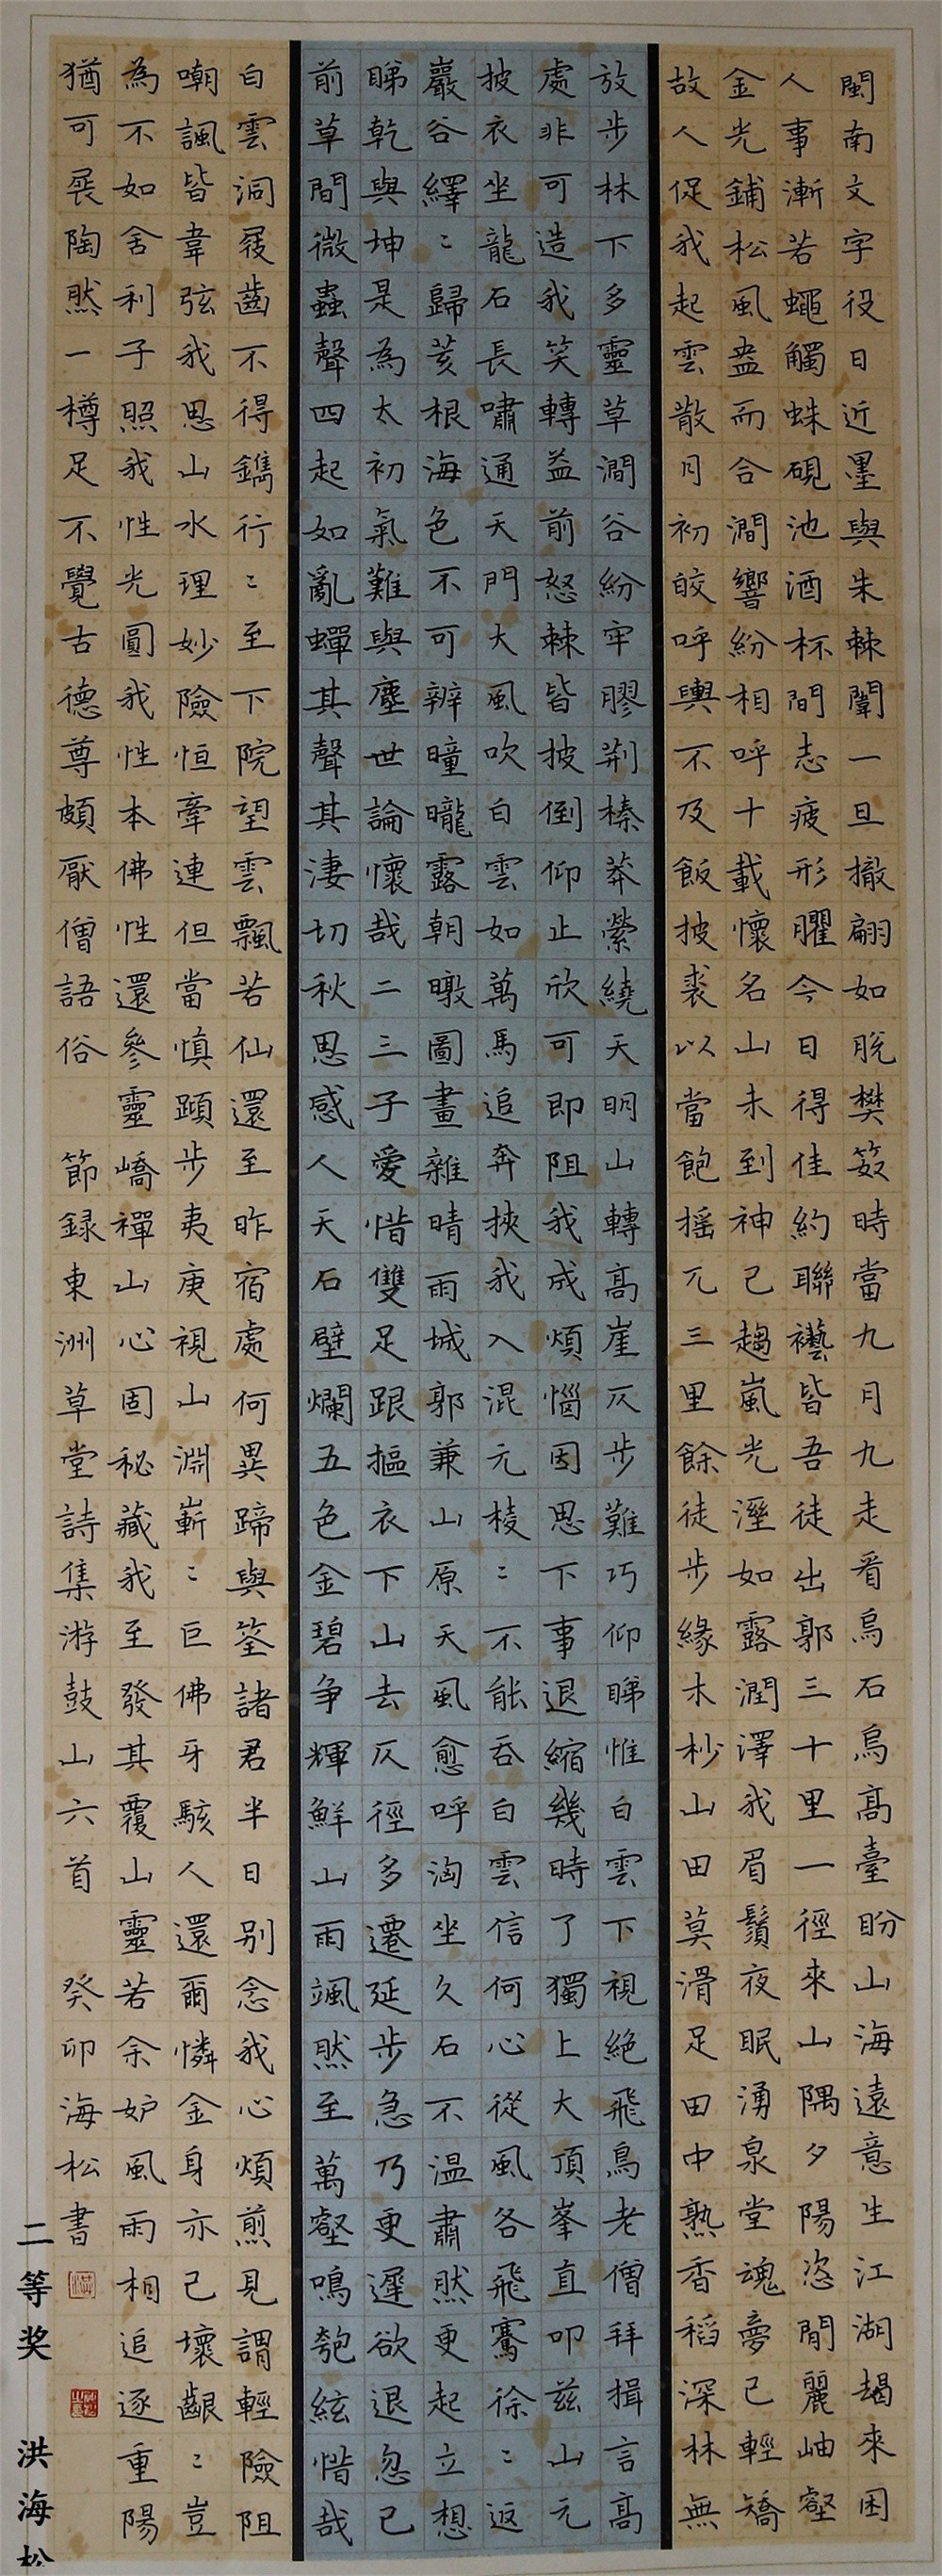 閩南文字役日近墨與朱棘闈一旦撤翩如脫樊笯時當九月九走看烏石烏高臺盼山海遠意生江湖朅來困
人事漸若蠅觸蛛硯池酒杯間志疲形臞今日得佳約聯襼皆吾徒出郭三十里一徑來山隅夕陽恣閒麗岫壑
金光鋪松風盎而合澗響紛相呼十載懷名山未到神已趨嵐光溼如露潤澤我眉鬚夜眠湧泉堂魂夢已輕矯
故人促我起雲散月初皎呼輿不及飯披裘以當飽搖兀三里餘徒步緣木杪山田莫滑足田中熟香稻深林無
放步林下多靈草澗谷紛牢膠荊榛莽縈繞天明山轉高崖仄步難巧仰睇惟白雲下視絕飛鳥老僧拜揖言高
處非可造我笑轉益前怒棘皆披倒仰止欣可即阻我成煩惱因思下事退縮幾時了獨上大頂峯直叩茲山元
披衣坐龍石長嘯通天門大風吹白雲如萬馬追奔挾我入混元棱〻不能吞白雲信何心從風各飛騫徐〻返
巖谷繹〻歸荄根海色不可辨曈曨露朝暾圖畫雜晴雨城郭兼山原天風愈呼洶坐久石不温肅然更起立想
睇乾與坤是為太初氣難與塵世論懷哉二三子愛惜雙足跟摳衣下山去仄徑多遷延步急乃更遲欲退忽已
前草間微蟲聲四起如亂蟬其聲其淒切秋思感人天石壁爛五色金碧爭輝鮮山雨颯然至萬壑鳴匏絃惜哉
白雲洞屐齒不得鐫行〻至下院望雲飄若仙還至昨宿處何異蹄與筌諸君半日别念我心煩煎見謂輕險阻
嘲諷皆韋弦我思山水理妙險恒牽連但當慎蹞步夷庚視山淵嶄〻巨佛牙駭人還爾憐金身亦已壞齦〻豈
為不如舍利子照我性光圓我性本佛性還參靈嶠禪山心固秘藏我至發其覆山靈若余妒風雨相追逐重陽
猶可展陶然一樽足不覺古德尊頗厭僧語俗 節録東洲草堂詩集游鼓山六首 癸卯海松書
二等奖 洪海松